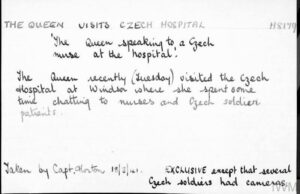 THE QUEEN VISITS CZECH HOSPITAL H8179
'The Queen speaking to a Czech
nurse at the hospital.'
The Queen recently (Tuesday) visited the Czech
Hospital at Windsor where she spent some
time chatting to nurses and Czech soldier
patients.
Taken by Capt. Horton
EXCLUSIVE except that several
Czech soldiers had cameras.
IWM